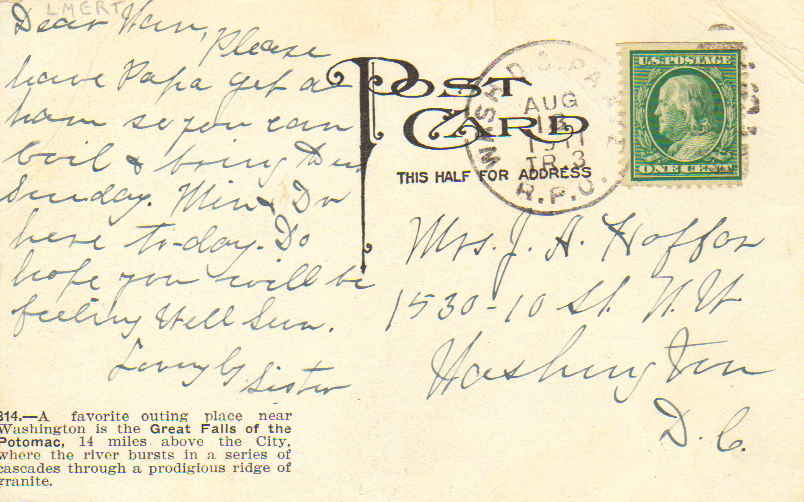 LMERT
Dear
Please
have Papa get a
ham so you can
boil & bring
Sunday. Min &
here to-day. Do
hope you will be
feeling Well Sun.
Lovingly
Sister
814.—A favorite outing place near
Washington is the Great Falls of the
Potomac, 14 miles above the City,
where the river bursts in a series of
cascades through a prodigious ridge of
granite.
POST
CARD
THIS HALF FOR ADDRESS
WASH.
AUG
1911
TR.3
R.P.O.
U.S. POSTAGE
ONE CENT
Mrs. J. A. Hoffar
1530-10 St. N.W
Washington
D.C.